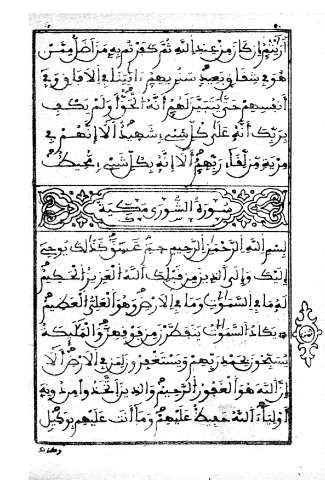 أرأيتم إن كان من عند الله ثم كفرتم به من أضل ممن
هو في شقاق بعيد سنريهم ءايتنا في الافاق وفي
أنفسهم حتى يتبين لهم أنه الحق أولم يكف
بربك أنه على كل شيء شهيد ألا إنهم في
مرية من لقاء ربهم ألا إنه بكل شيء محيط
سورة الشورى مكية
بسم الله الرحمن الرحيم حم عسق كذلك يوحي
إليك وإلى الذين من قبلك الله العزيز الحكيم
له ما في السموات وما في الارض وهو العلي العظيم
يكاد السموات يتفطرن من فوقهن والملئكة
يسبحون بحمد ربهم ويستغفرون لمن في الارض ألا
إن الله هو الغفور الرحيم والذين اتخذوا من دونه
أولياء الله حفيظ عليهم وما أنت عليهم بوكيل
وكذلك